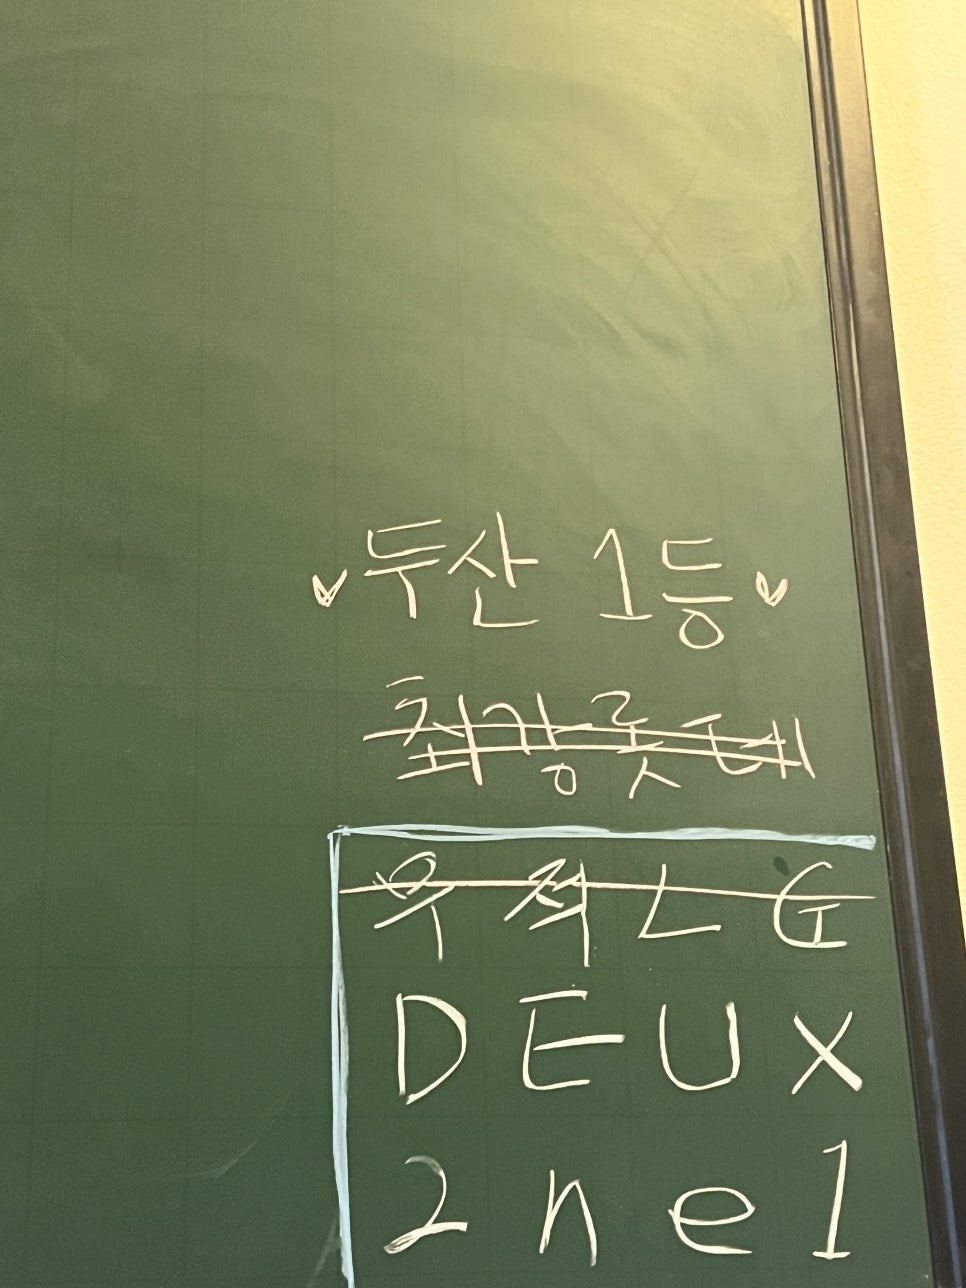 ♡두산 1등♡
최강롯데
무적LG
DEUX
2ne1